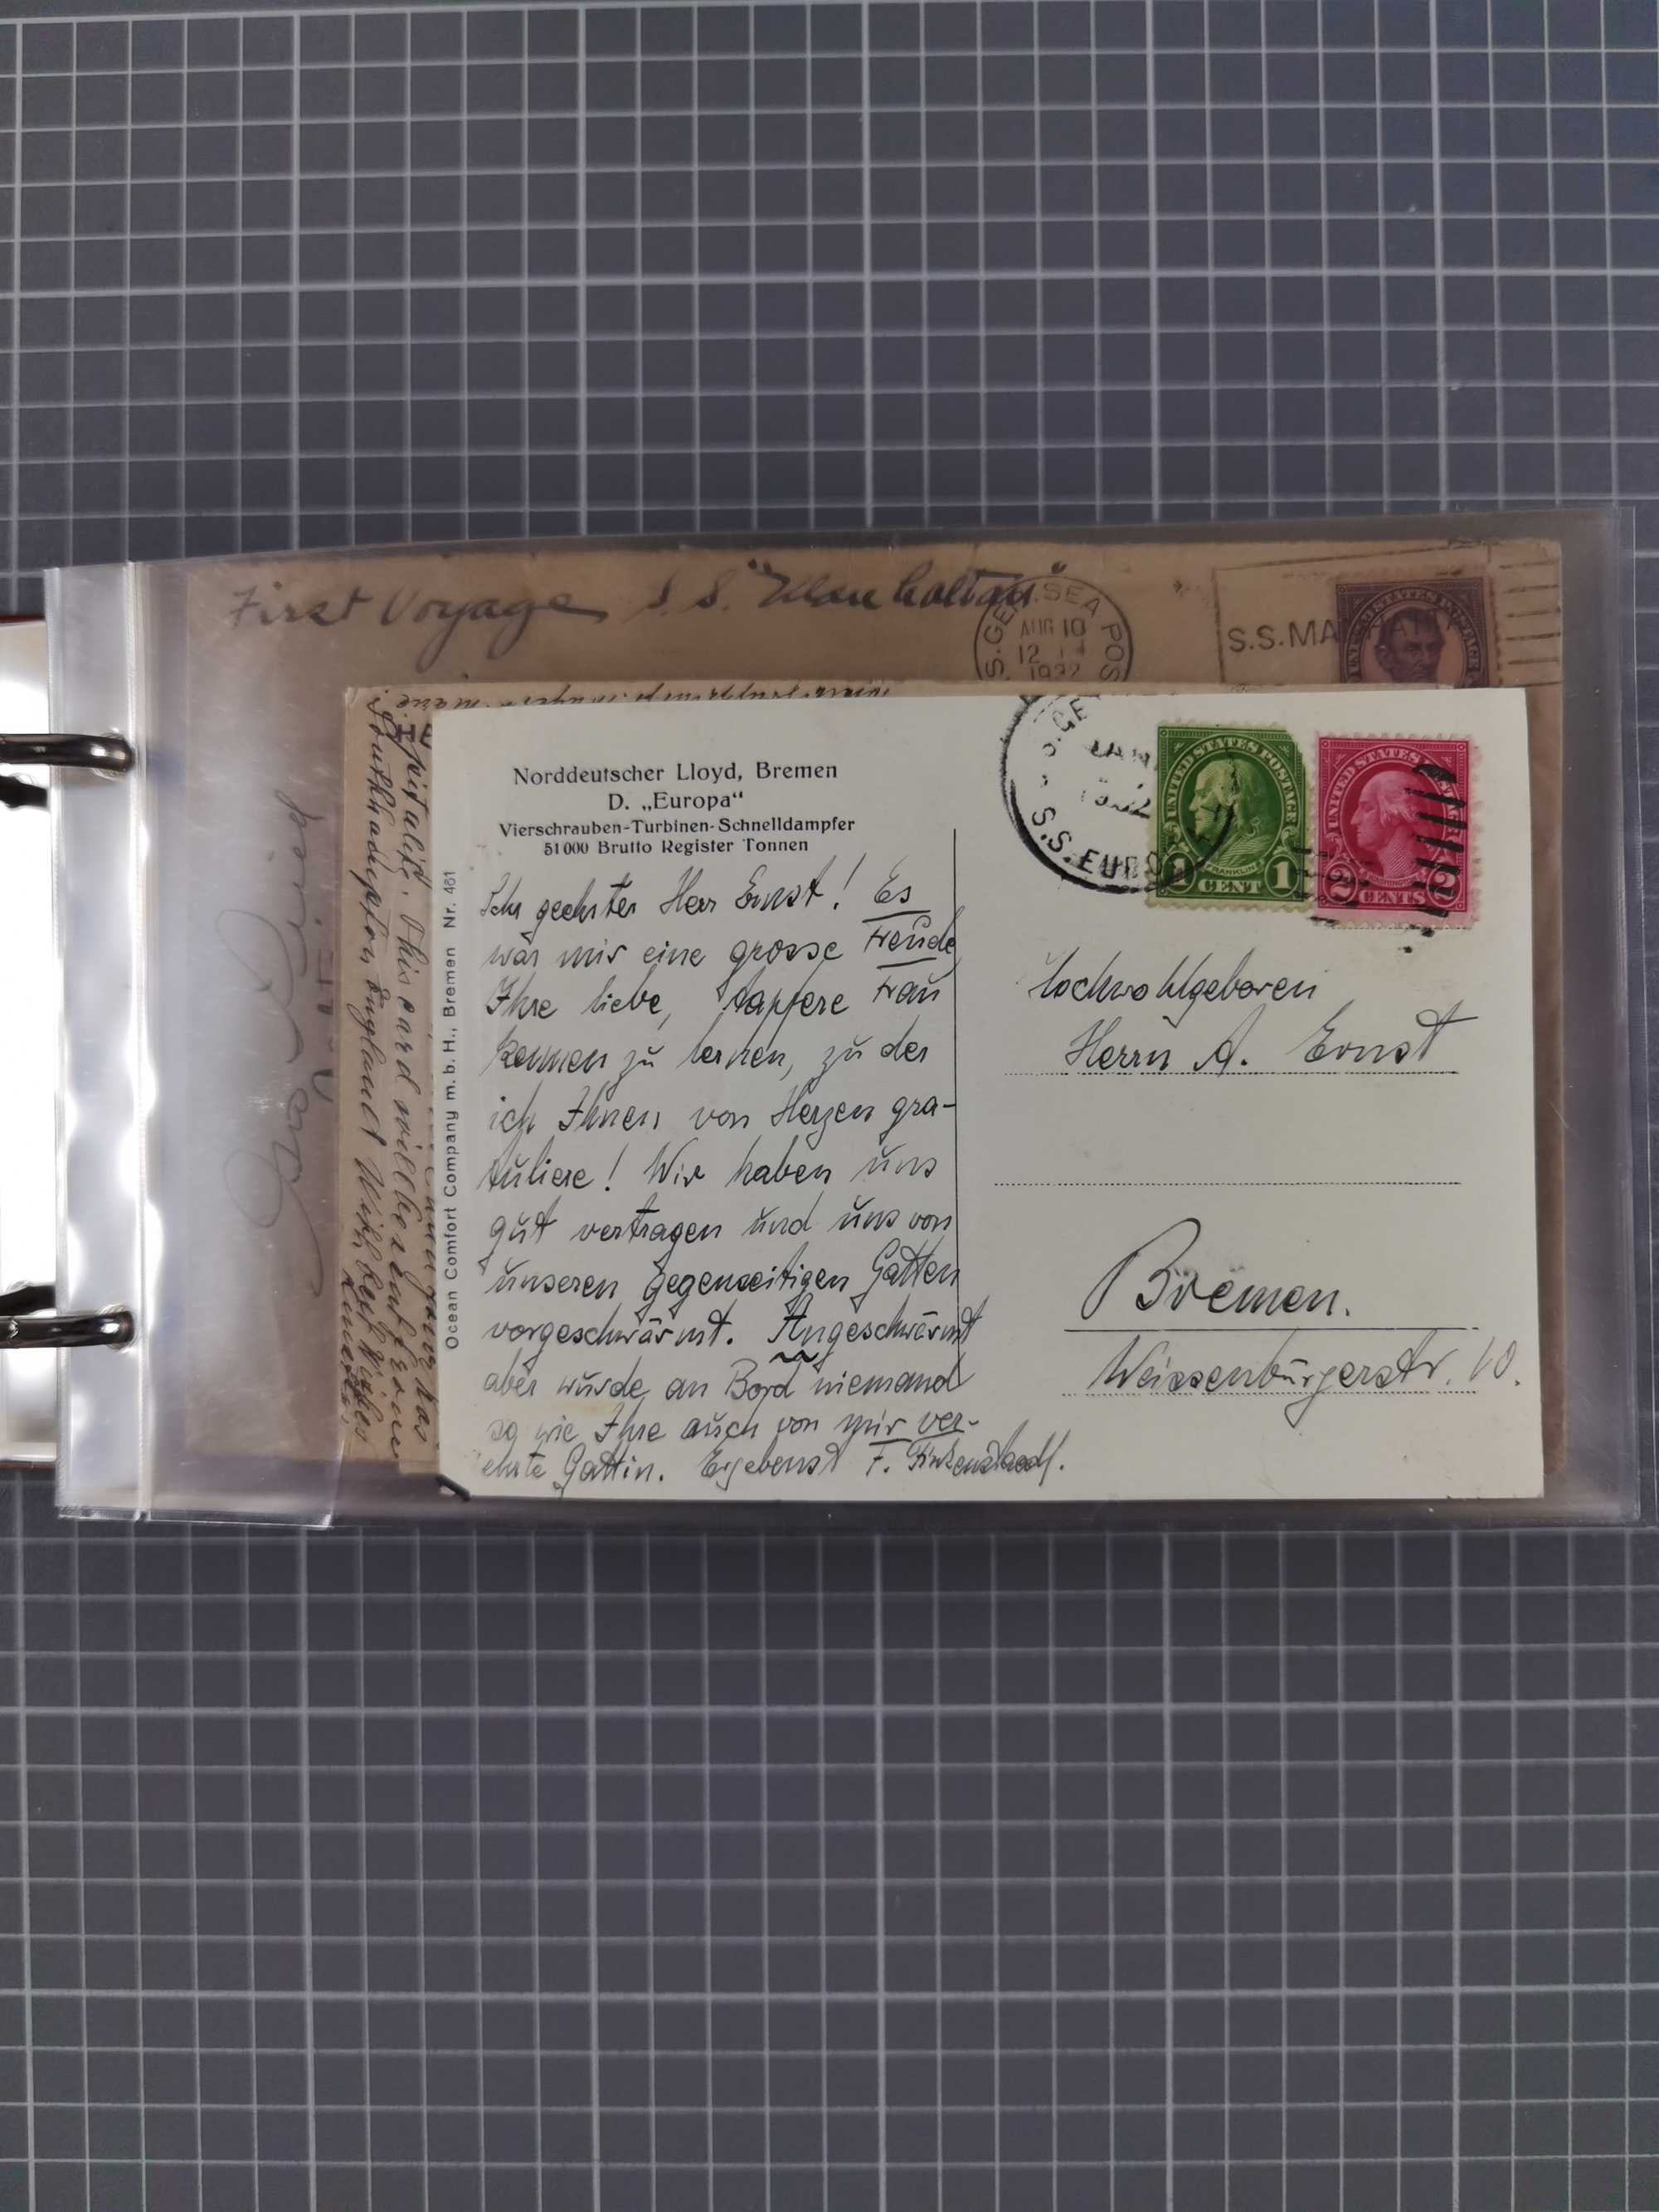 First Voyage S.S. "Manhattan"
AUG 10
12
1932
S.S.MANHATTAN
UNITED STATES POSTAGE
Norddeutscher Lloyd, Bremen
D. „Europa“
Vierschrauben-Turbinen-Schnelldampfer
51 000 Brutto Register Tonnen
Sehr geehrter Herr Ernst! Es
war mir eine grosse Freude
Ihre liebe, tapfere Frau
kennen zu lernen, zu der
ich Ihnen von Herzen gra-
tuliere! Wir haben uns
gut vertragen und uns von
unseren gegenseitigen Gatten
vorgeschwärmt. Angeschwärmt
aber wurde an Bord niemand
so wie Ihre auch von mir ver-
ehrte Gattin. Ergebenst F.
Ocean Comfort Company m. b. H., Bremen Nr. 461
S.S. EUROPA
UNITED STATES POSTAGE
FRANKLIN
1 CENT 1
UNITED STATES POSTAGE
2 CENTS 2
Hochwohlgeboren
Herrn A. Ernst
Bremen.
Weissenburgerstr. 10.
hospitality. This card will be sent from
Southhampton England With best wishes